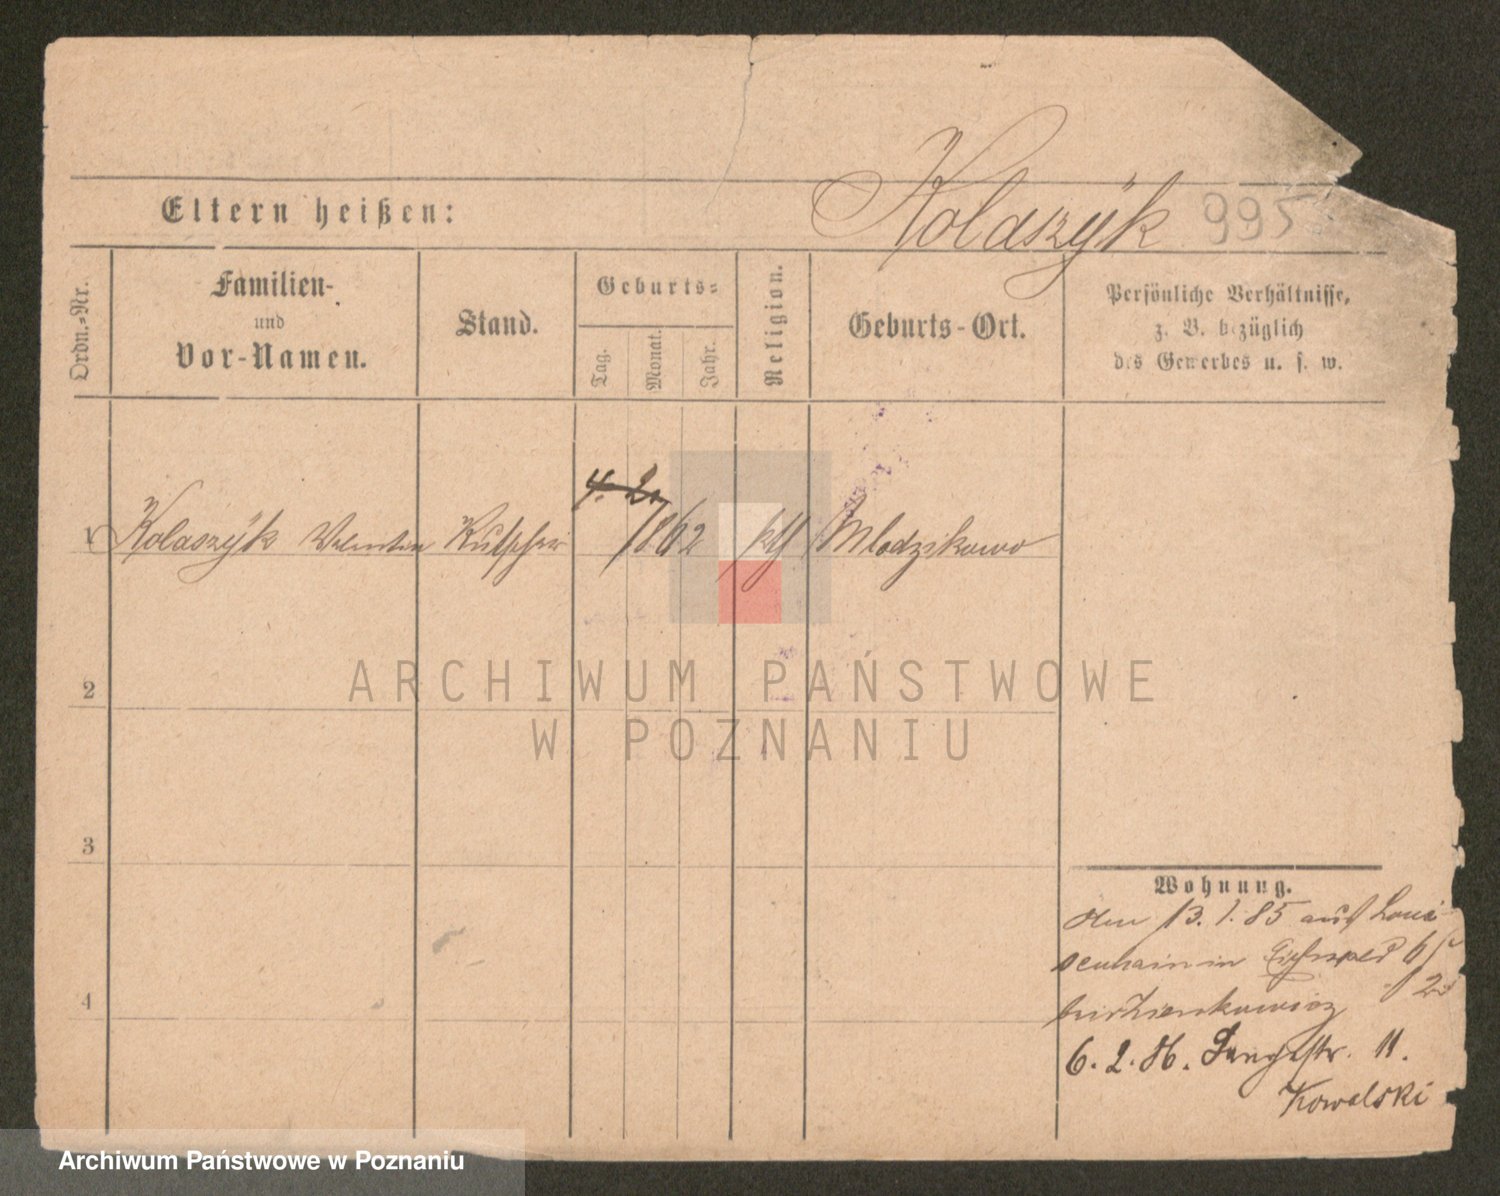 Kolaszÿk 995
Eltern heißen:
Ordn.-Nr.
Familien-
und
Vor-Namen.
Stand.
Geburts-
Tag.
Monat.
Jahr.
Religion.
Geburts-Ort.
Persönliche Verhältnisse,
z. B. bezüglich
des Gewerbes u. s. w.
1 Kolaszÿk Valentin Kutscher 4. 2. 1862 kth Mlodzikowo
2
3
4
Wohnung.
den 13. 1. 85 aus Loui-
senhain in
bei Zienkowicz
6. 2. 86. Langestr. 11.
Kowalski
ARCHIWUM PAŃSTWOWE
W POZNANIU
Archiwum Państwowe w Poznaniu